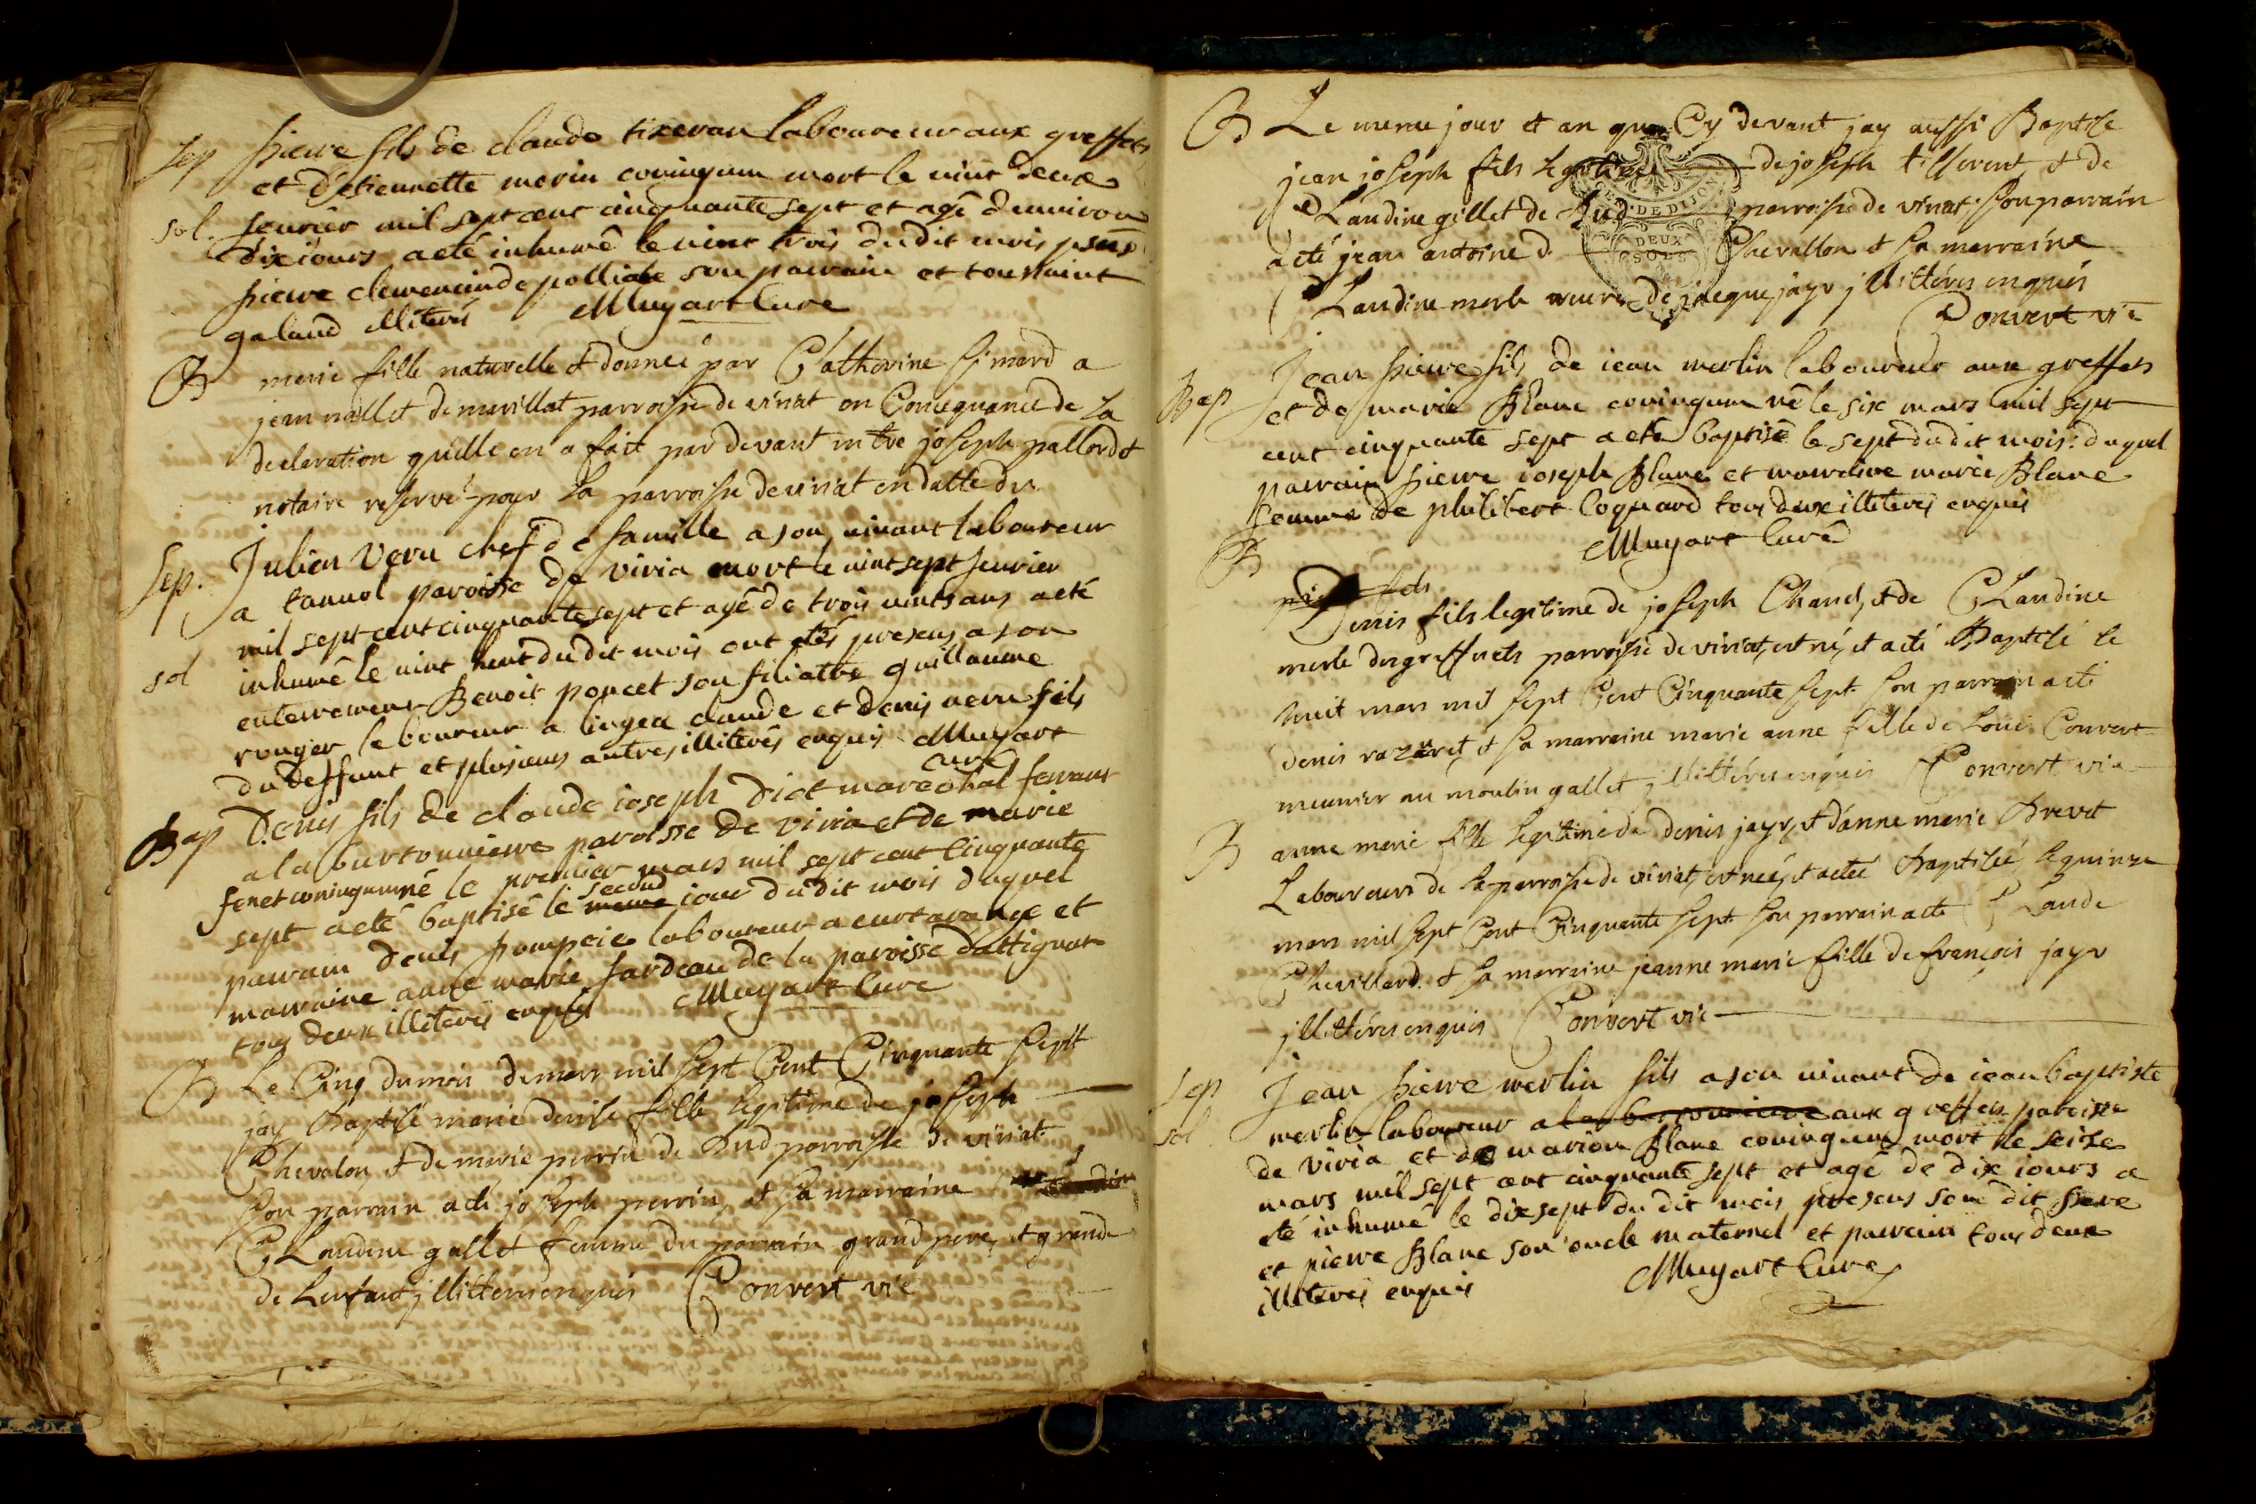 Sep pierre fils de claude tixeran laboureur aux greffets
et d'etiennette morin coniugum mort le vint deux
sol. feurier mil sept cent cinquante sept et agé d'environ
dix iours a eté inhumé le vint trois du dit mois pñs
pierre clemencin de polliat son parrain et toussaint
galand illiterés Muyart Curé
B marie fille naturelle & donneé par Catherine simard a
jean nallet de marillat parroisse de viriat en Conseq̃uance de la
declaration qu'elle en a fait par devant mtre joseph pallord &
notaire reservé pour la parroisse de viriat en datte du
Sep. Julien Veru chef de famille a son vivant laboureur
a tannol paroisse de viria mort le vint sept feurier
mil sept cent cinquante sept et agé de trois vints ans a eté
sol inhumé le vint huit du dit mois ont étés presens a son
enterrement Benoit poncet son filiatre guillaume
rouyer laboureur a lingea claude et denis veru fils
du deffunt et plusieurs autres illiterés enquis Muyart
Curé
Bap Denis fils de claude ioseph Diot marechal ferrant
a la burtonniere paroisse de viria et de marie
feret coniugum né le premier mars mil sept cent cinquante
second
sept a eté baptisé le meme iour du dit mois duquel
parrain denis pompeie laboureur a curtarange et
marraine anne marie fardeau de la paroisse d'attignat
tous deux illiterés enquis Muyart Curé
B Le Cinq du mois de mars mil sept Cent Cinquante sept
jay Baptisé marie denise fille legitime de joseph
Chevalon & de marie perrin de Sud parroisse de viriat
son parrain a eté joseph perrin & sa marraine
Claudine gallet femme du parrain grand pere & grande
de L'enfant jllitterés enquis Convert vic
B Le meme jour et an que Cy devant jay aussi Baptisé
jean joseph fils legitime de joseph tilleront & de
Claudine gillet de Sud parroisse de viriat son parrain
DE DIJON
DEUX
SOLS
a eté jean antoine d Chevallon & sa marraine
Claudine merle veuve de jacque jayr jllittérés enquis
Convert vic
Bap Jean pierre fils de iean merlin laboureur aux greffets
et de marie Blanc coniugum né le six mars mil sept
cent cinquante sept a eté baptisé le sept du dit mois: duquel
parrain pierre ioseph Blanc et marraine marie Blanc
femme de philibert Coquard tous deux illiterés enquis
Muyart Curé
B
Denis fils legitime de joseph Chanel & de Claudine
merle des greffiets parroisse de viriat, est né, et a eté Baptisé le
huit mars mil sept Cent Cinquante sept son parrain a eté
denis razuret & sa marraine marie anne fille de Louis Convert
meunier au moulin gallet jllittérés enquis Convert vic
B anne marie fille legitime de denis jayr, & d'anne marie Brevet
Laboureurs de la parroisse de viriat, est neé, et a eteé Baptiseé, le quinze
mars mil sept Cent Cinquante sept son parrain a eté Claude
Chevillard & sa marraine jeanne marie fille de françois jayr
jllittérés enquis Convert vic
Sep Jean pierre merlin fils a son vivant de iean baptiste
sol merlin laboureur a la burtonniere aux greffets paroisse
de viria et de marion Blanc coniugum mort le seize
mars mil sept cent cinquante sept et agé de dix iours a
eté inhumé le dix sept du dit mois presens son dit pere
et pierre Blanc son oncle maternel et parrain tous deux
illiterés enquis Muyart Curé